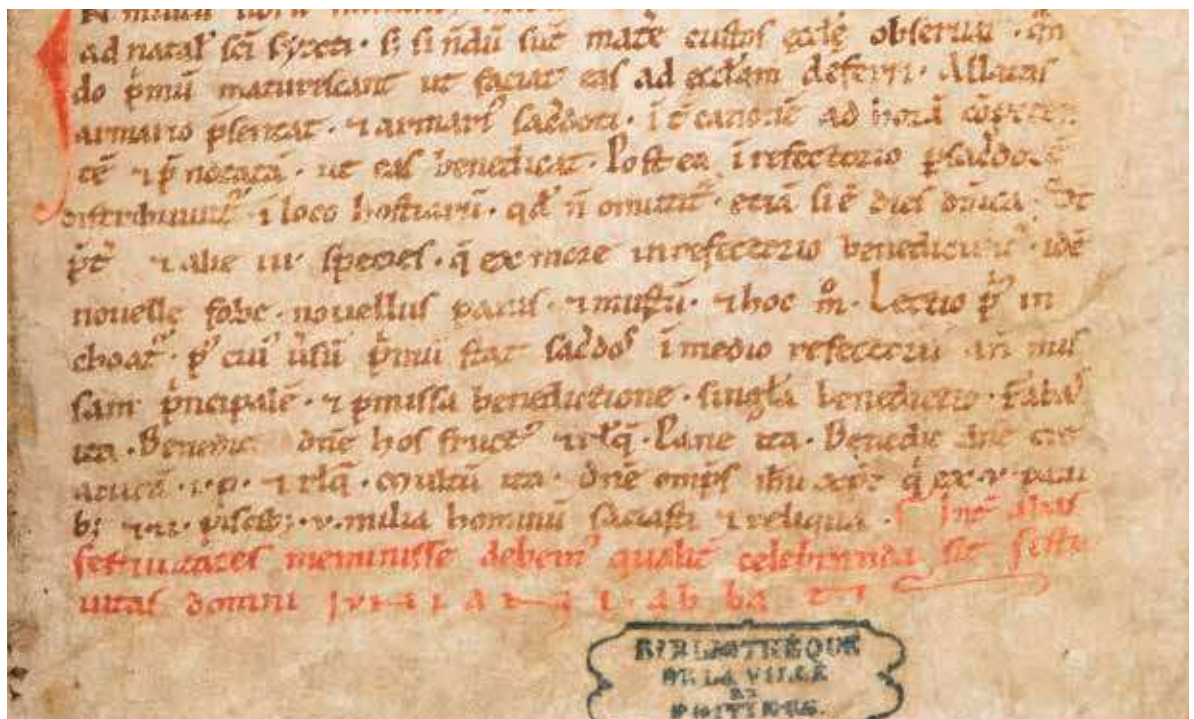 ad natal' sci syxti · s; si ndū sūt mate custos ęcclę obseruat · qn
do pmū maturescant ut faciat eas ad eccłam deferri · Allatas
armario psentat · ⁊ armari' sacdoti · ad horā cōpeten
tē ⁊ p notatā · ut eas benedicat · Post ea ī refectorio p sacdotē
distribuunt' ī loco hostiarū · qđ n̄ omittit' · etiā si ē dies dn̄ica · St
pt' ⁊ alie iii species · q̄ ex more in refectorio benedicunt' · idē
nouelle fabe · nouellus panis · ⁊ mustū · ⁊ hoc m° · Lectio p' in
choat' · p' cui' ūsū pmū stat sacdos ī medio refectorii an̄ mē
sam pncipalē · ⁊ pmissa benedictione · singła benedicit · Fabas
ita · Benedic dn̄e hos fruct' ⁊ rlq̄ · Pane ita · Benedic dn̄e cre
aturā · i · p · ⁊ rlq̄ · mustū ita · Dn̄e omps ihu xpe q' ex · v · pani
b; ⁊ ii · piscib; · v · milia hominū saciasti ⁊ reliqua · Int' alias
festiuitates meminisse debem' qualit' celebranda sit festi
uitas domni iuniani abba tis
BIBLIOTHÈQUE
DE LA VILLE
DE
POITIERS.